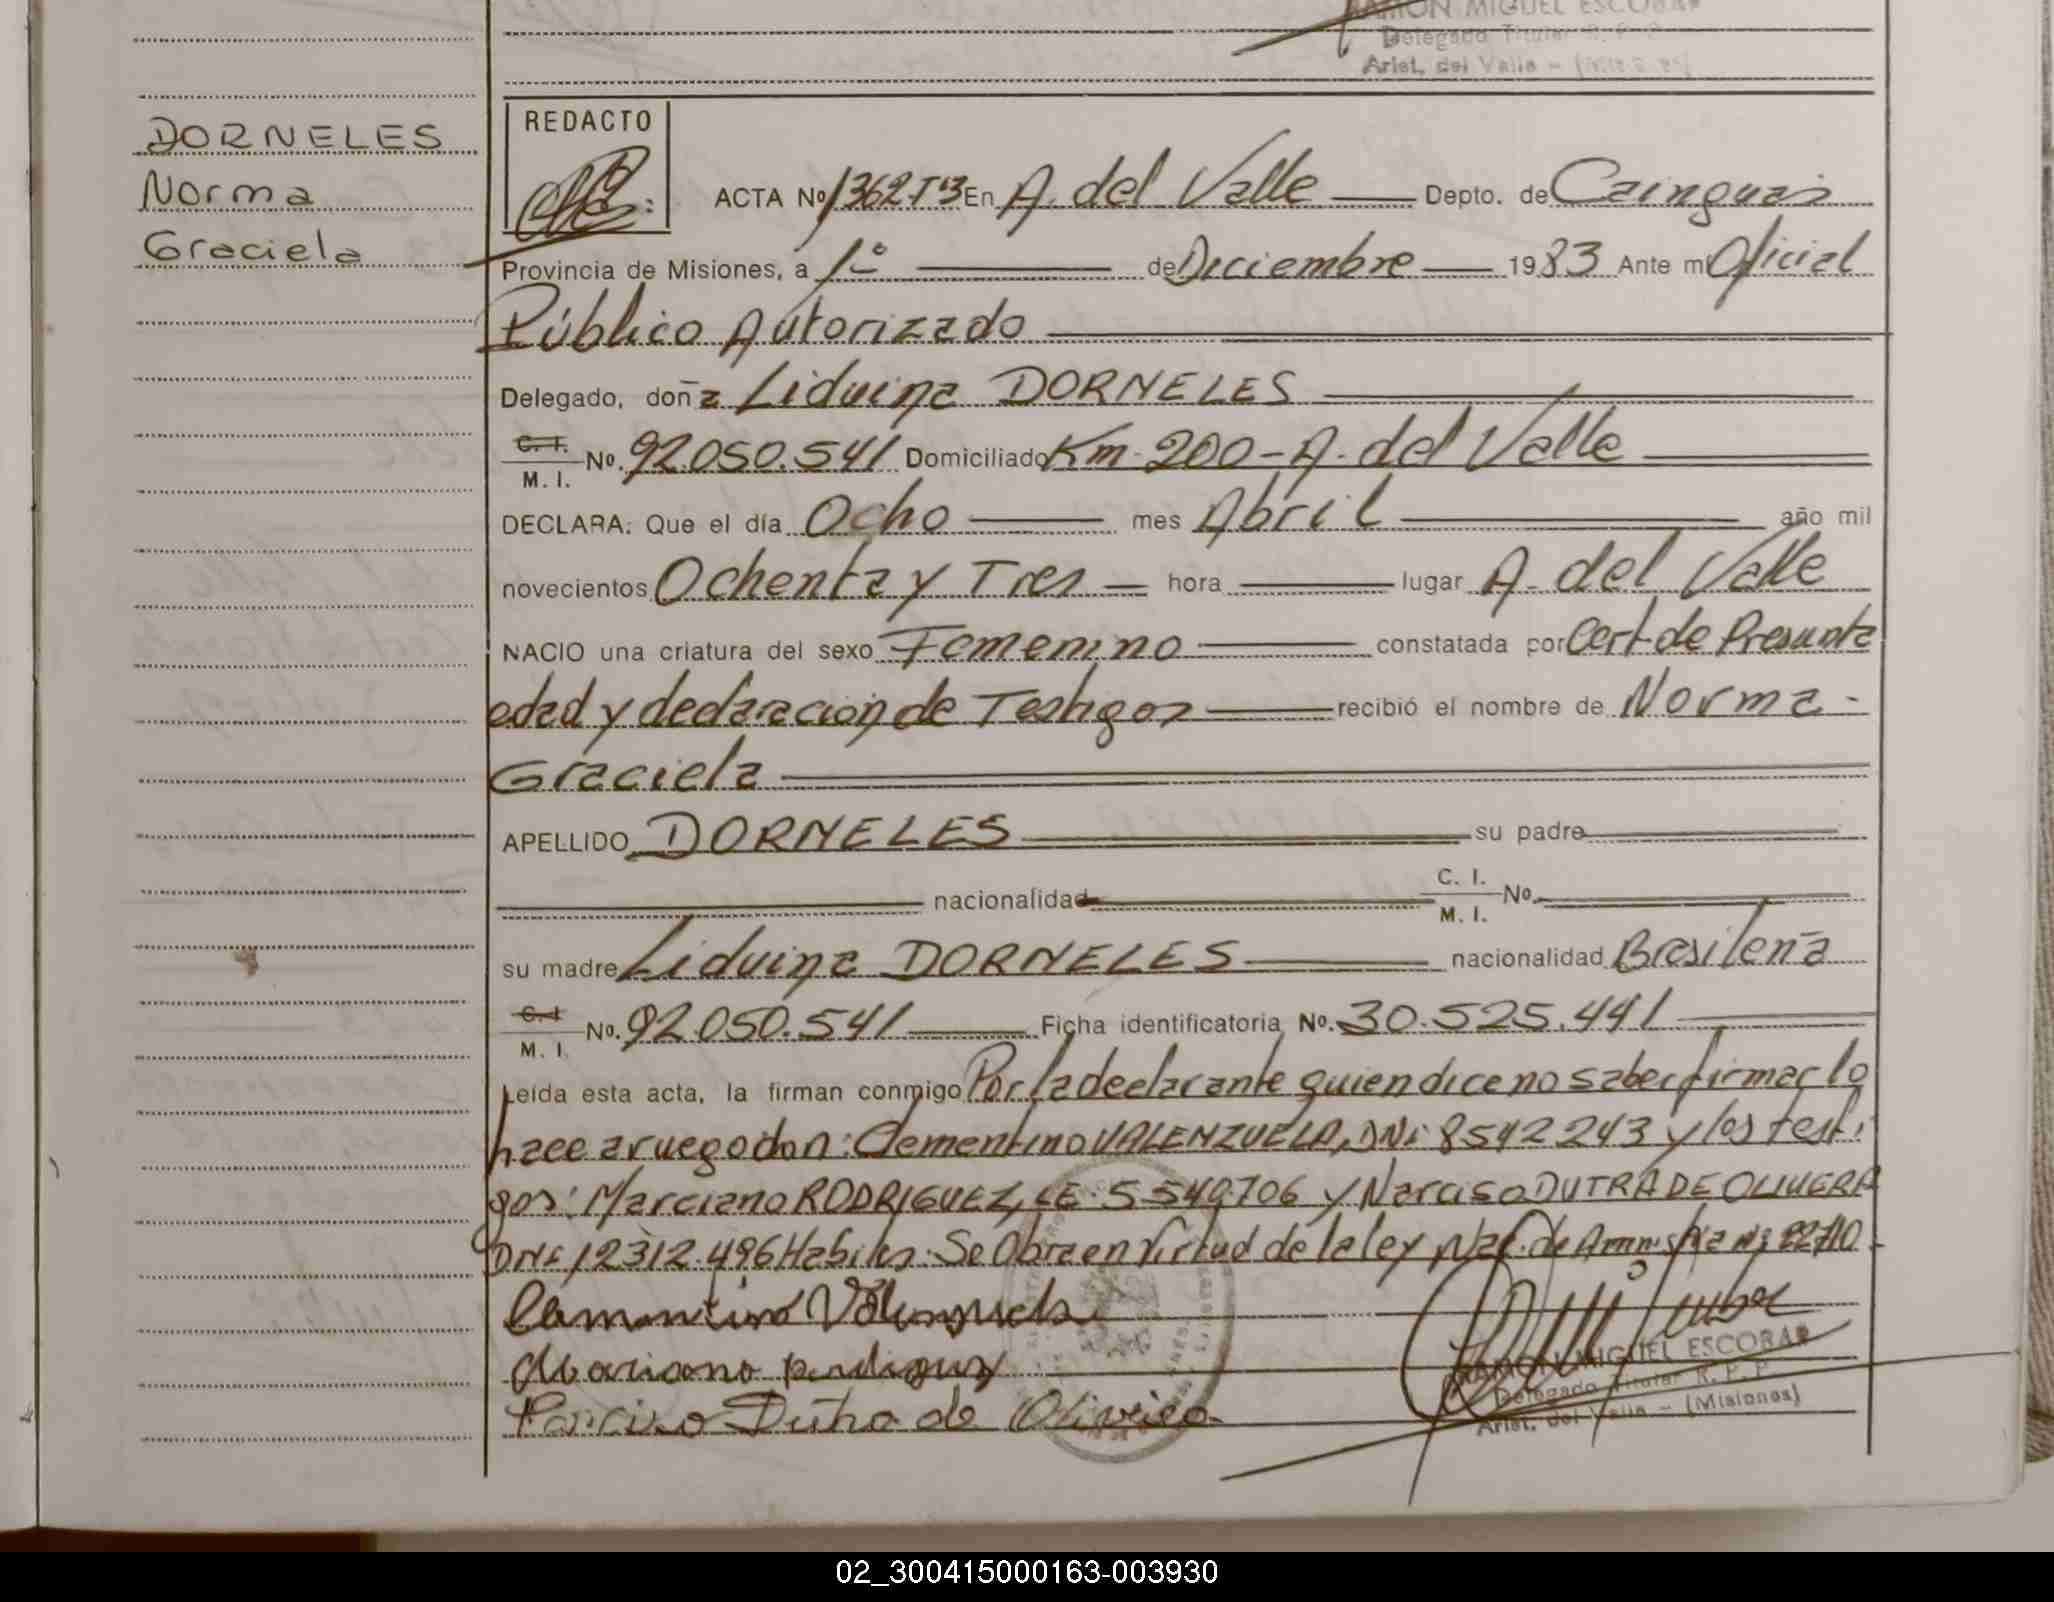 RAMON MIGUEL ESCOBAR
Delegado Titular R. P. P.
Arist. del Valle - (Misiones)
DORNELES
Norma
Graciela
REDACTO
ACTA Nº 1362 T:3 En A. del Valle Depto. de Cainguas
Provincia de Misiones, a 1º de Diciembre 1983 Ante mi Oficial
Público Autorizado
Delegado, doña Liduina DORNELES
C. I.
M. I. Nº. 92.050.541 Domiciliado Km. 200 - A. del Valle
DECLARA: Que el día Ocho mes Abril año mil
novecientos Ochenta y Tres hora lugar A. del Valle
NACIO una criatura del sexo Femenino constatada por Cert. de Presunta
edad y declaración de Testigos recibió el nombre de Norma -
Graciela
APELLIDO DORNELES su padre
nacionalidad C. I.
M. I. Nº.
su madre Liduina DORNELES nacionalidad Brasileña
C. I
M. I. Nº. 92.050.541 Ficha identificatoria Nº. 30.525.441
Leída esta acta, la firman conmigo Por la declarante quien dice no saber firmar lo
hace a ruego don: Clementino VALENZUELA, DNI 8542243 y los testi
gos: Marciano RODRIGUEZ, LE. 5.549.706 y Narciso DUTRA DE OLIVERA
DNI 12312.496 Habiles. Se Obra en Virtud de la ley Nac. de Amnistia Nº 22710
Clementino Valenzuela
Marciano Rodriguez
Narciso Dutra de Oliveira
RAMON MIGUEL ESCOBAR
Delegado Titular R. P. P.
Arist. del Valle - (Misiones)
02_300415000163-003930